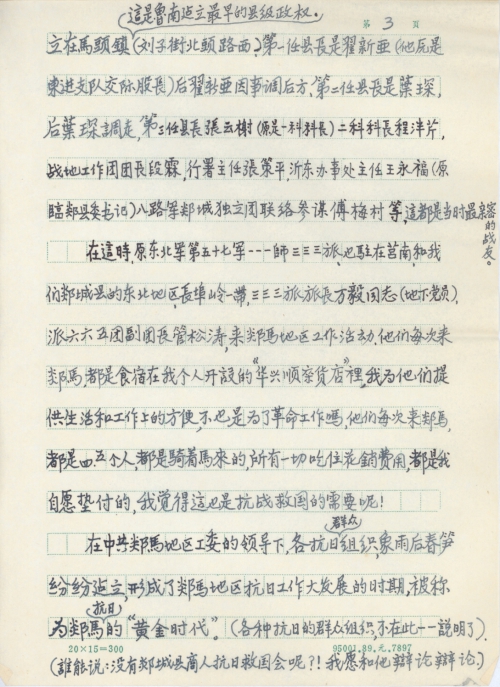 這是鲁南建立最早的县级政权.
第 3 页
立在馬頭鎮(刘子街北頭路西),第一任县長是翟新亜(他原是
東進支队交际股長)后翟新亜因事调后方,第二任县長是葉琛,
后葉琛調走,第三任县長張云榭(原是一科科長)二科科長程泮芹,
战地工作团团長段霖,行署主任張策平,沂东办事处主任王永福(原
臨郯县委书记)八路军郯城独立团联络参谋傅梅村等,這都是当时最親密
的战友。
在這時,原东北军第五十七军一一一師三三三旅,也駐在莒南和我
们郯城县的东北地区,長埠岭一带,三三三旅旅長万毅同志(地下党员),
派六六五团副团長管松涛,来郯馬地区工作活动,他们每次来
郯馬,都是食宿在我个人开設的"华兴顺杂货店"裡,我为他们提
供生活和工作上的方便,不也是为了革命工作嗎,他们每次来郯馬,
都是四.五个人,都是騎着馬來的,所有一切吃住花銷費用,都是我
自愿垫付的,我觉得這也是抗战救国的需要呢!
在中共郯馬地区工委的领导下,各抗日群众组织,象雨后春笋
纷纷建立,形成了郯馬地区抗日工作大发展的时期,被称
为郯馬抗日的"黄金时代"。(各种抗日的群众组织,不在此一一説明了).
20×15=300
95001.89.元.7897
(誰能说:没有郯城县商人抗日救国会呢?!我愿和他辯论辯论.)